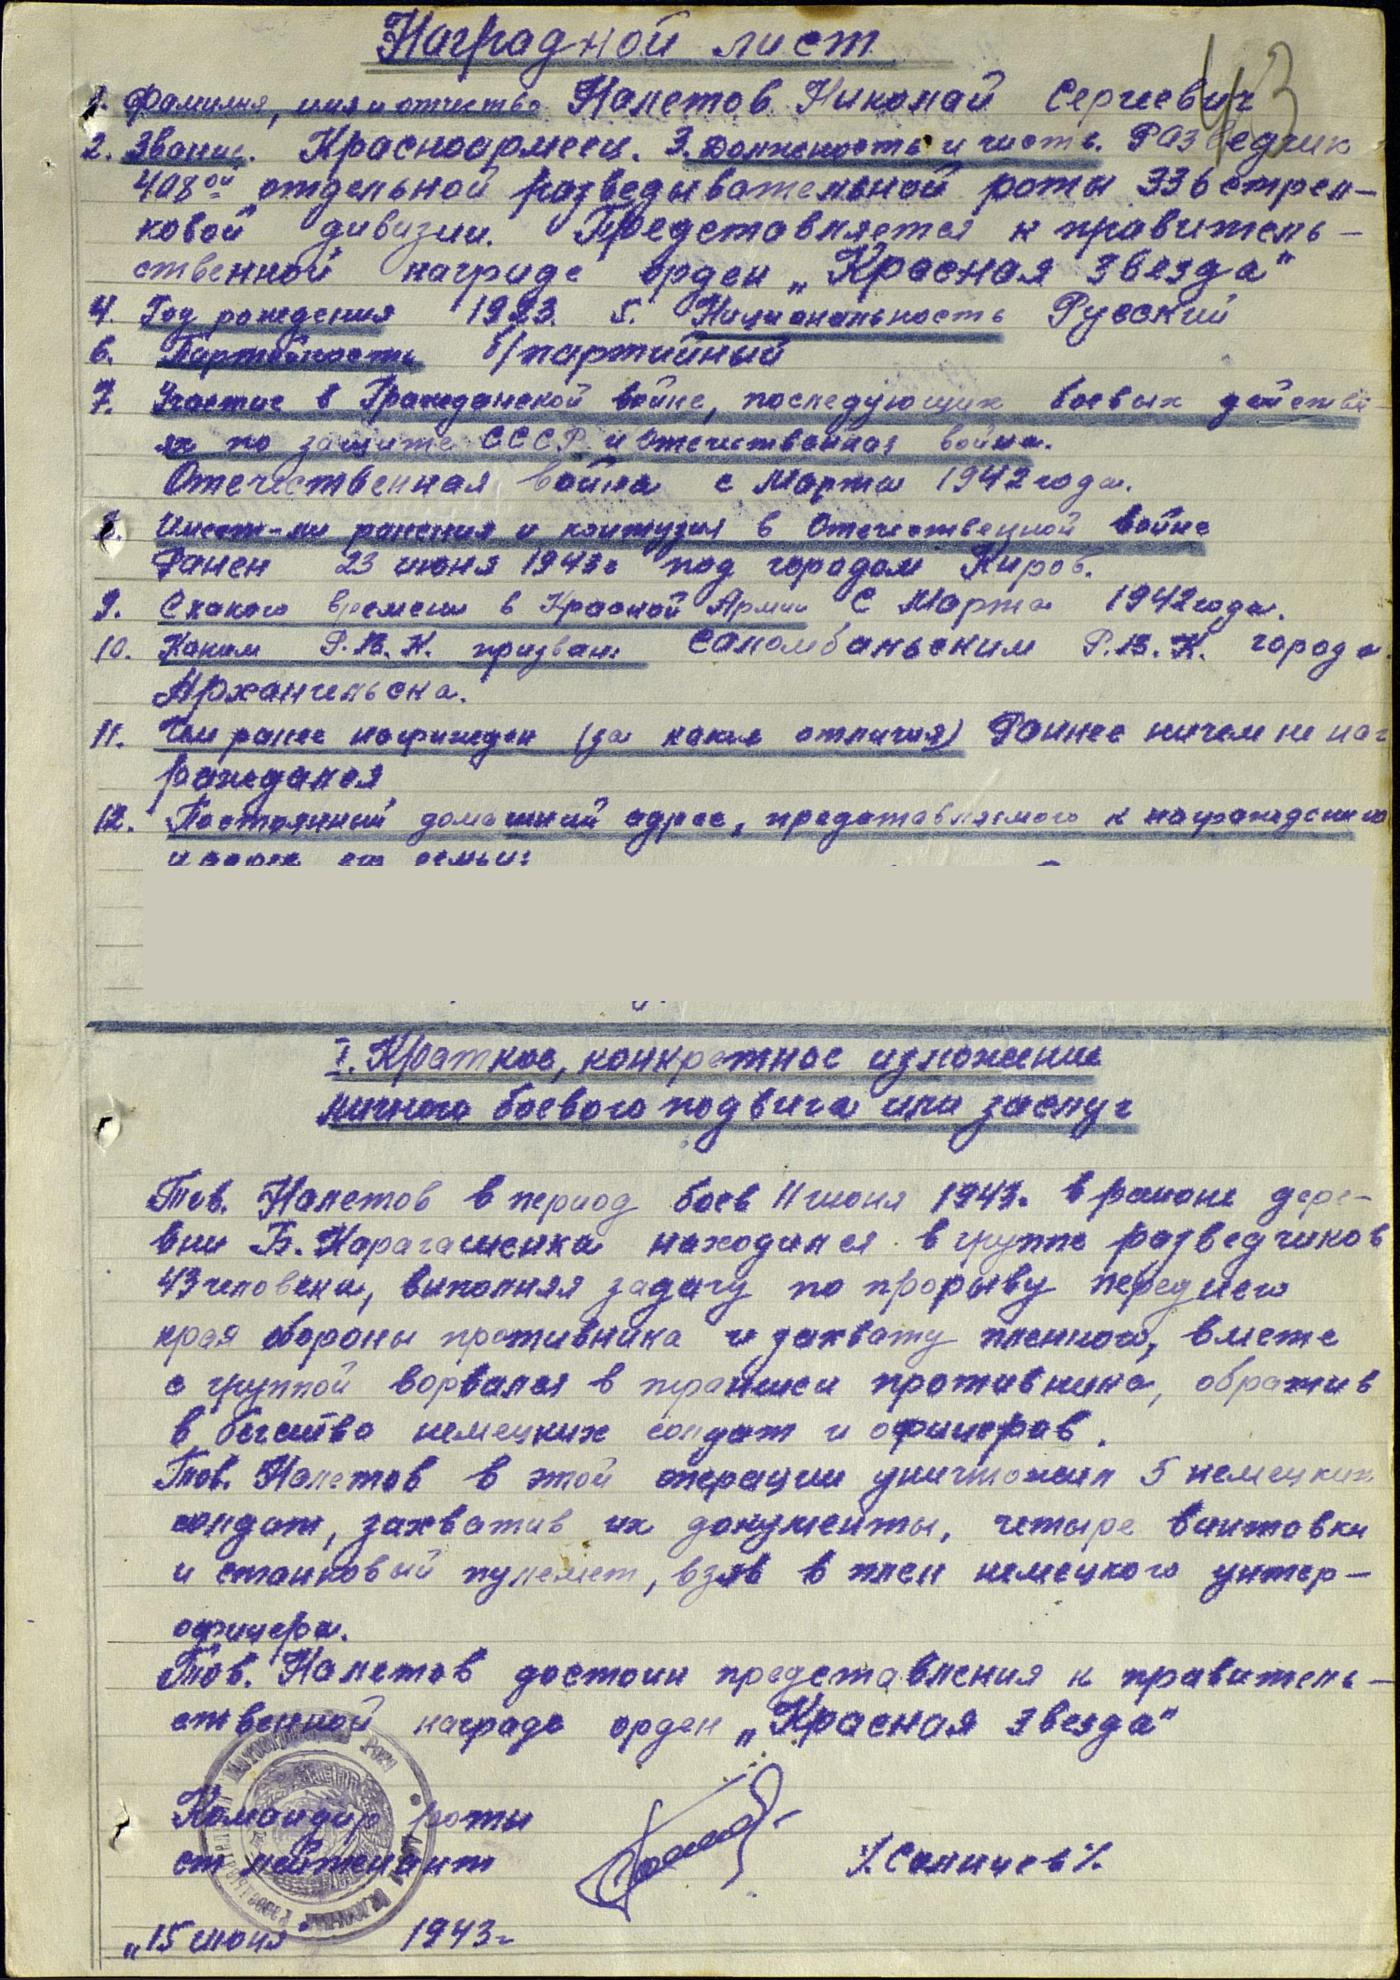 Наградной лист
43
1. Фамилия, имя и отчество Налетов Николай Сергиевич
2. Звание. Красноармеец. 3. Должность и часть. Разведчик
408ой отдельной разведывательной роты 336 стрел-
ковой дивизии. Представляется к правитель-
ственной награде орден „Красная звезда"
4. Год рождения 1923. 5. Национальность Русский
6. Партейность б/партийный
7. Участие в Гражданской войне, последующих боевых действи-
ях по защите СССР и отечественная война.
Отечественная война с Марта 1942 года.
8. Имеет-ли ранения и контузия в Отечественной войне
Ранен 23 июня 1943г под городом Киров.
9. С какого времени в Красной Армии С Марта 1942 года.
10. Каким Р.В.К. призван: Саломбаньским Р.В.К. города
Архангельска.
11. Чем ранее награжден (за какие отличия) Раннее ничем не наг
раждался
12. Постоянный домашний адрес, представляемого к награждению
и адрес его семьи:
I. Краткое, конкретное изложение
личного боевого подвига или заслуг
Тов. Налетов в период боев 11 июня 1943г. в районе дере-
вни Б. Карагашенка находился в группе разведчиков
43 человека, выполняя задачу по прорыву переднего
края обороны противника и захвату пленного, вместе
с группой ворвался в траншеи противника, обратив
в бегство немецких солдат и офицеров.
Тов. Налетов в этой операции уничтожил 5 немецких
солдат, захватив их документы, четыре винтовки
и станковый пулемет, взяв в плен немецкого унтер-
офицера.
Тов. Налетов достоин представления к правитель-
ственной награде орден „Красная звезда"
Командир роты
ст лейтенант /Саличев/.
„15 июня 1943г